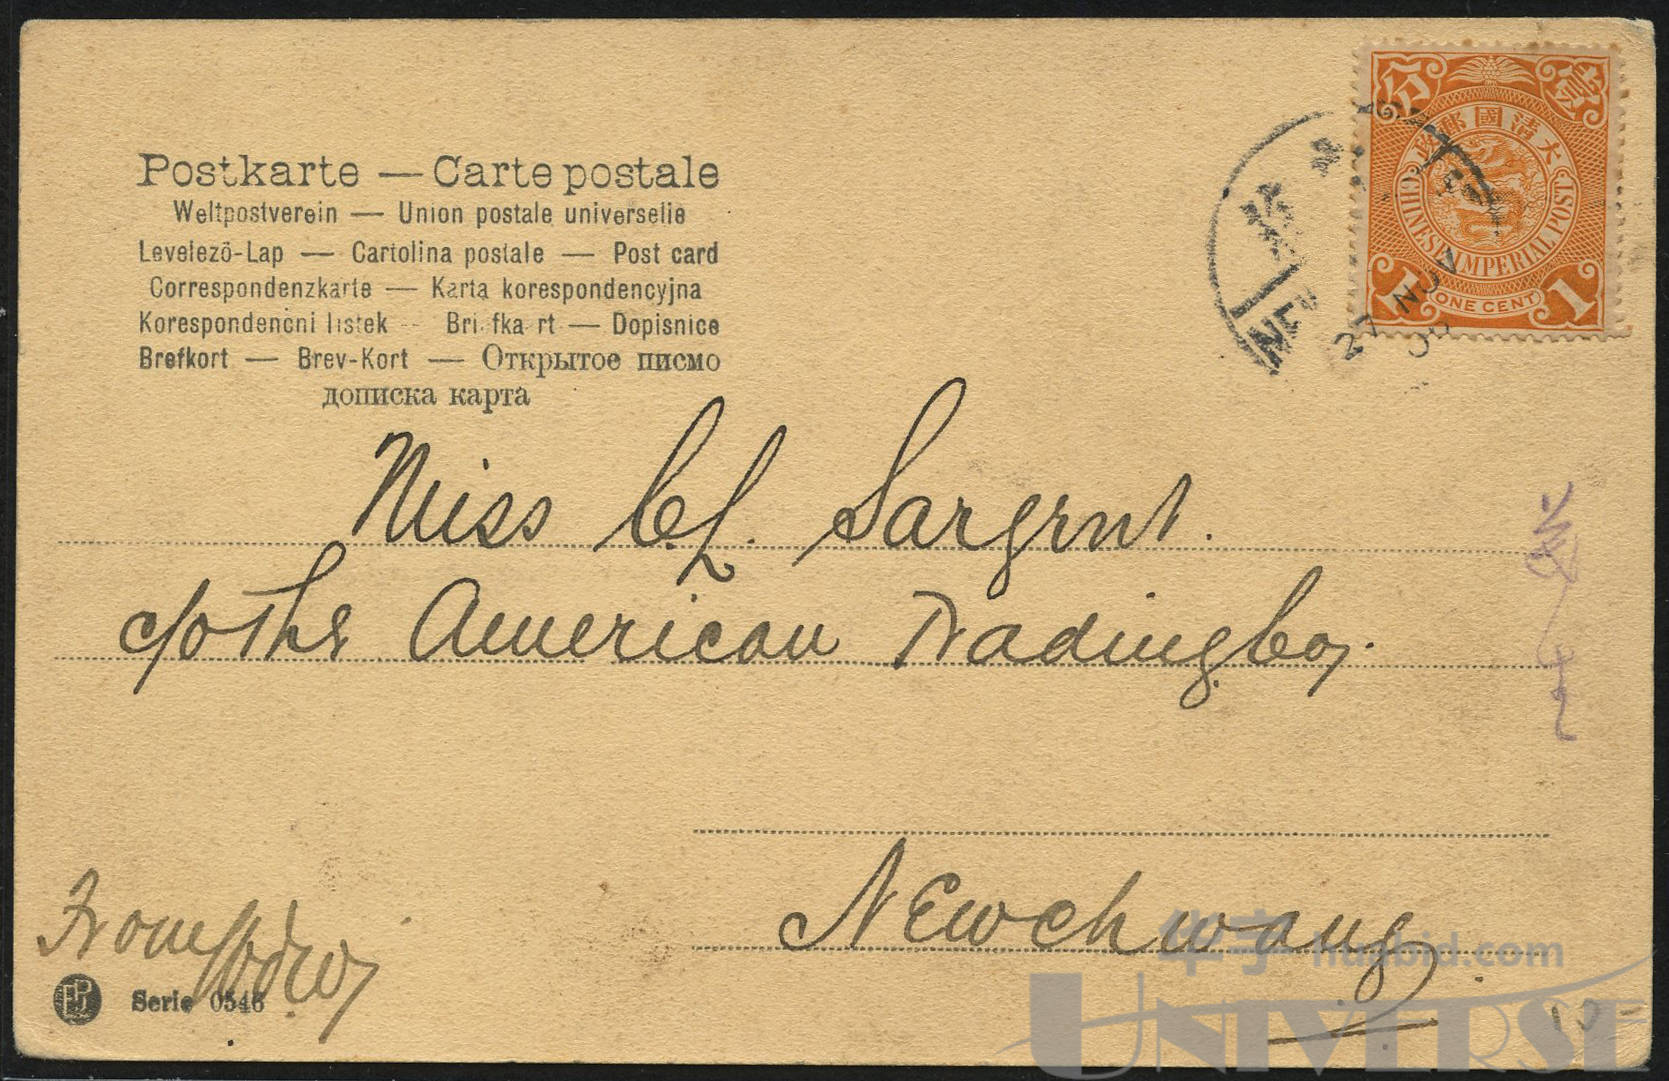 Postkarte — Carte postale
Weltpostverein — Union postale universelle
Levelező-Lap — Cartolina postale — Post card
Correspondenzkarte — Karta korespondencyjna
Korespondenčni listek — Briefkaart — Dopisnice
Brefkort — Brev-Kort — Открытое писмо
дописка карта
分 壹
大清國郵政
CHINESE IMPERIAL POST
1 ONE CENT 1
27 NOV
Miss C.L. Sargent.
c/o The American Trading Co,.
Newchwang.
From
Serie 0546
华宇 huabid.com
UNIVERSE